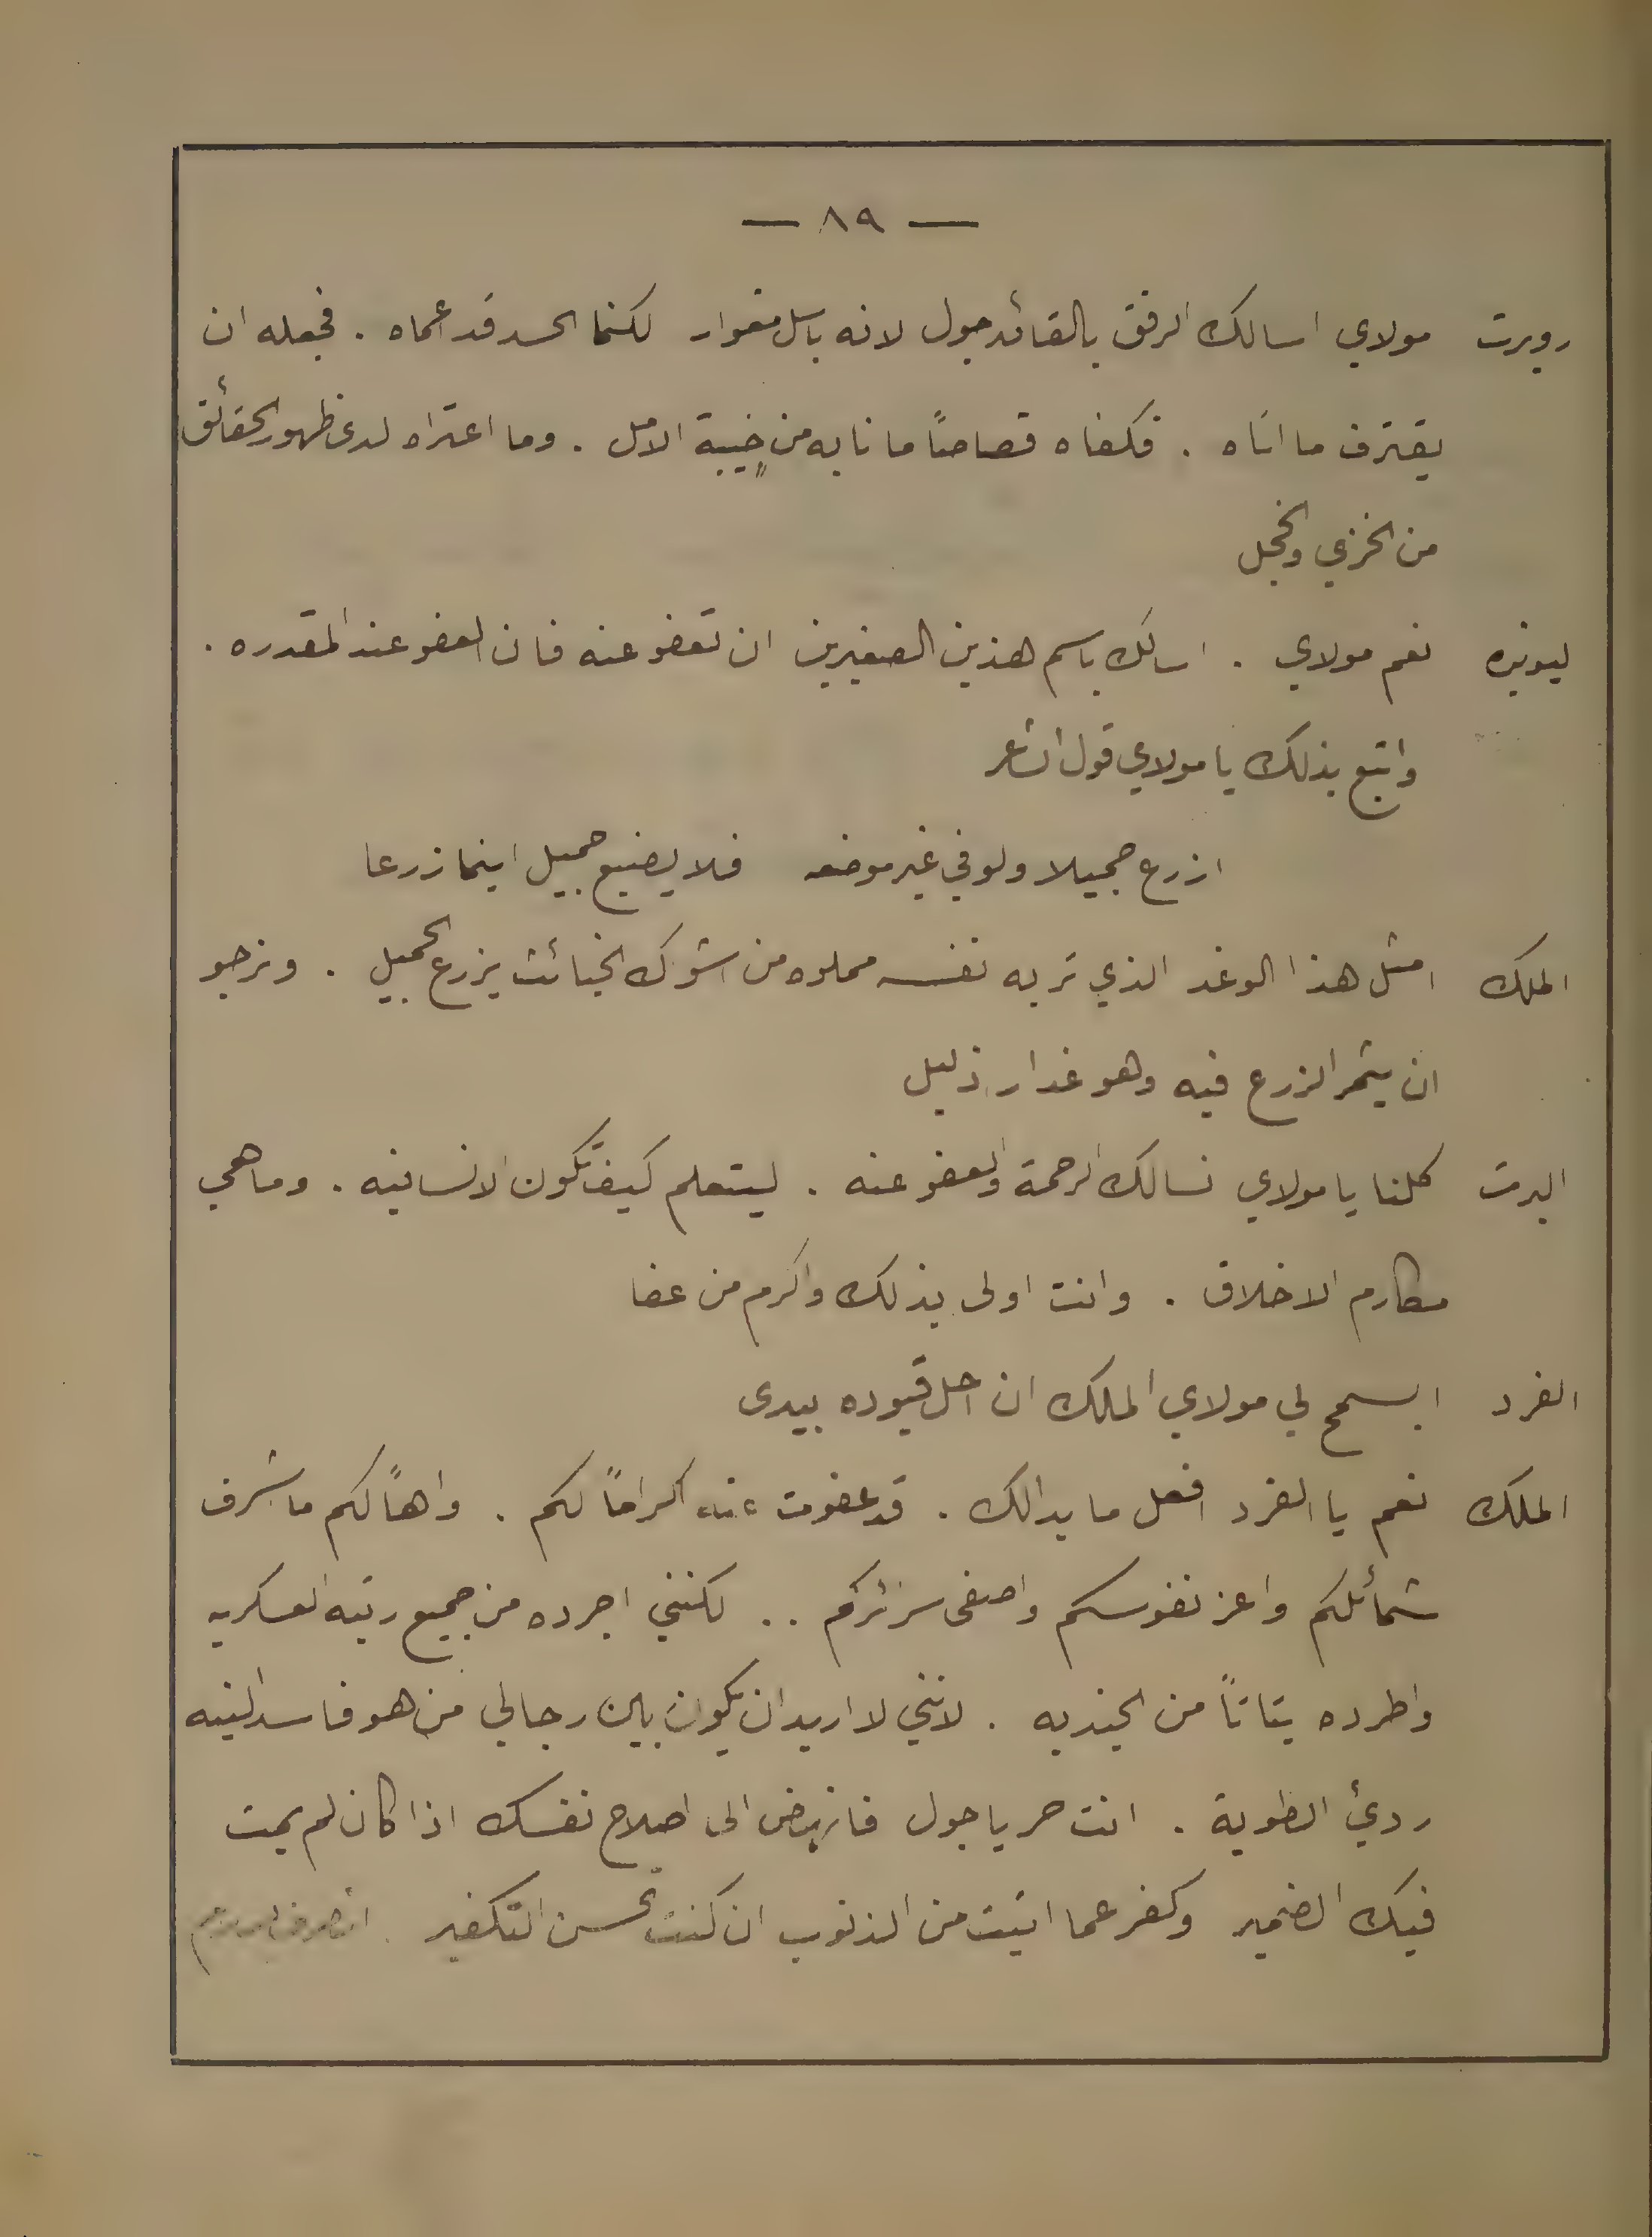 — ٨٩ —
روبرت مولاي اسالك الرفق بالقائد جول لانه باسل مغوار لكنما الحسد قد اعماه . فجعله ان
يقترف ما اتاه . فكفاه قصاصاً ما نابه من خيبة الامل . وما اعتراه لدى ظهور الحقائق
من الخزي والخجل
ليونيره نعم مولاي . اسالك باسم هذين الصغيرين ان تعفو عنه فان العفو عند المقدره .
واتبع بذلك يا مولاي قول الشاعر
ازرع جميلا ولو في غير موضعه فلا يضيع جميل اينما زرعا
الملك امثل هذا الوغد الذي تربه نفسه مملوه من اشواك الخبائث يزرع الجميل . ونرجو
ان يثمر الزرع فيه وهو غدار ذليل
البرت كلنا يا مولاي نسالك الرحمة والعفو عنه . ليتعلم كيف تكون الانسانيه . وما هي
مكارم الاخلاق . وانت اولى بذلك واكرم من عفا
الفرد ايسمح لي مولاي الملك ان احل قيوده بيدى
الملك نعم يا الفرد افعل ما بدالك . قد عفوت عنه اكراماً لكم . واهاً لكم ما شرف
شمائلكم واعز نفوسكم واصفى سرائركم .. لكنني اجرده من جميع رتبه العسكريه
واطرده بتاتاً من الجنديه . لانني لا اريد ان يكون بين رجالي من هو فاسد النيه
ردئ الطوية . انت حر يا جول فانهض الى اصلاح نفسك اذا كان لم يمت
فيك الضمير وكفر عما اتيت من الذنوب ان كنت تحسن التكفير .